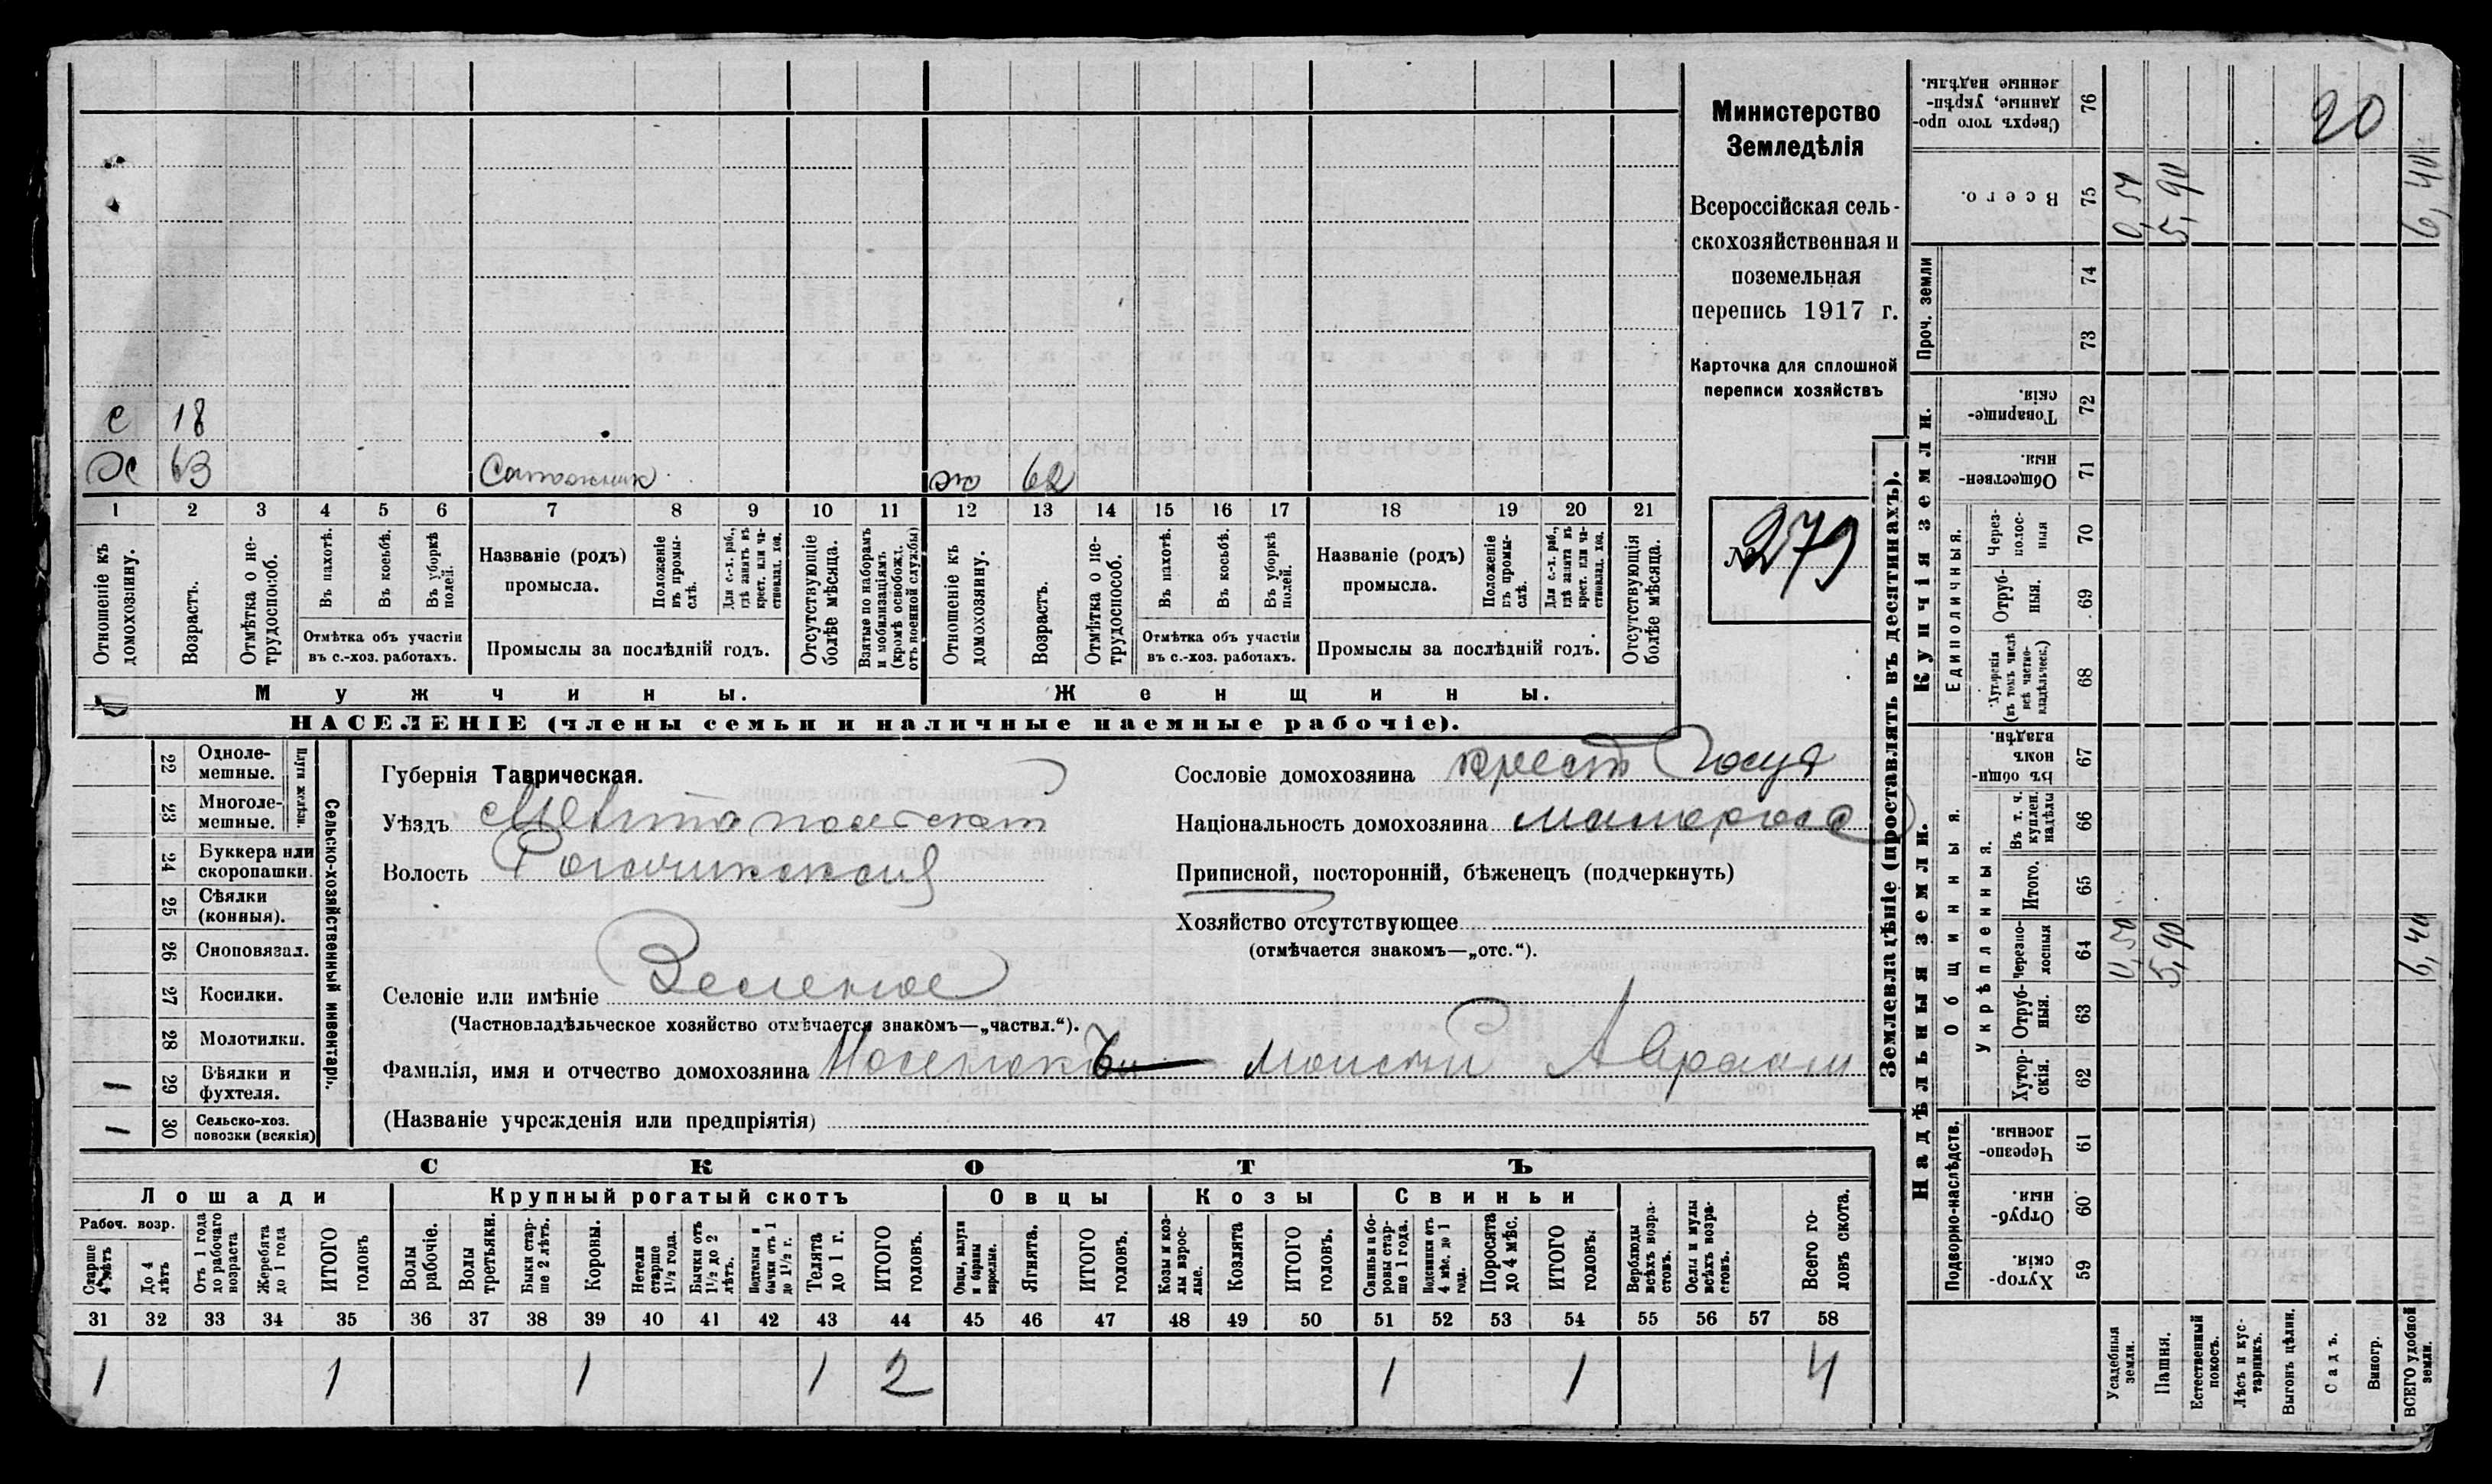 Министерство
Земледѣлія
Всероссійская сель-
скохозяйственная и
поземельная
перепись 1917 г.
Карточка для сплошной
переписи хозяйствъ
№ 279
с 18
Х 63
62
1 2 3 4 5 6 7 8 9 10 11 12 13 14 15 16 17 18 19 20 21
Отношеніе къ домохозяину.
Возрастъ.
Отмѣтка о не-трудоспособ.
Въ пахотѣ.
Въ косьбѣ.
Въ уборкѣ полей.
Отмѣтка объ участіи
въ с.-хоз. работахъ.
Названіе (родъ)
промысла.
Положеніе въ промы-слѣ.
Для с.-х. раб., гдѣ занятъ въ крест. или ча-стновлад. хоз.
Промыслы за послѣдній годъ.
Отсутствующіе болѣе мѣсяца.
Взятые по наборамъ и мобилизаціямъ (кромѣ освобожд. отъ военной службы)
Отношеніе къ домохозяину.
Возрастъ.
Отмѣтка о не-трудоспособ.
Въ пахотѣ.
Въ косьбѣ.
Въ уборкѣ полей.
Отмѣтка объ участіи
въ с.-хоз. работахъ.
Названіе (родъ)
промысла.
Положеніе въ промы-слѣ.
Для с.-х. раб., гдѣ занята въ крест. или ча-стновлад. хоз.
Промыслы за послѣдній годъ.
Отсутствующія болѣе мѣсяца.
Мужчины.
Женщины.
НАСЕЛЕНІЕ (члены семьи и наличные наемные рабочіе).
22 Одноле-мешные.
23 Многоле-мешные.
Плуги желѣзн.
24 Буккера или скоропашки.
25 Сѣялки (конныя).
26 Сноповязал.
27 Косилки.
28 Молотилки.
1 29 Вѣялки и фухтеля.
1 30 Сельско-хоз. повозки (всякія)
Сельско-хозяйственный инвентарь.
Губернія Таврическая.
Уѣздъ Мелитопольскій
Волость Рогачикская
Селеніе или имѣніе Зеленое
(Частновладѣльческое хозяйство отмѣчается знакомъ—„частвл.“).
Фамилія, имя и отчество домохозяина Моисей Авраам
(Названіе учрежденія или предпріятія)
Сословіе домохозяина крест Госуд
Національность домохозяина малоросс
Приписной, посторонній, бѣженецъ (подчеркнуть)
Хозяйство отсутствующее
(отмѣчается знакомъ—„отс.“).
СКОТЪ
Лошади
Крупный рогатый скотъ
Овцы
Козы
Свиньи
Рабоч. возр.
Старше 4 лѣтъ
До 4 лѣтъ
Отъ 1 года до рабочаго возраста
Жеребята до 1 года
ИТОГО головъ
Волы рабочіе.
Волы третьяки.
Быки стар-ше 2 лѣтъ.
Коровы.
Нетели старше 1½ года.
Бычки отъ 1½ до 2 лѣтъ.
Подтелки и бычки отъ 1 до 1½ г.
Телята до 1 г.
ИТОГО головъ.
Овцы, валухи и бараны взрослые.
Ягнята.
ИТОГО головъ.
Козы и коз-лы взрос-лые.
Козлята
ИТОГО головъ.
Свиньи и бо-ровы стар-ше 1 года.
Подсвинки отъ 4 мѣс. до 1 года.
Поросята до 4 мѣс.
ИТОГО головъ.
Верблюды всѣхъ возра-стовъ.
Ослы и мулы всѣхъ возра-стовъ.
Всего го-ловъ скота.
31 32 33 34 35 36 37 38 39 40 41 42 43 44 45 46 47 48 49 50 51 52 53 54 55 56 57 58
1 1 1 1 2 1 1 4
Землевладѣніе (проставлять въ десятинахъ).
Купчія земли.
Надѣльныя земли.
Проч. земли
Единоличныя.
Общинныя.
Укрѣпленныя.
Подворно-наслѣдств.
76 Сверхъ того про-данные, укрѣп-ленные надѣлы.
75 Всего. 0,50 5,90 6,40
20
74
73
72 Товарище-скія.
71 Обществен-ныя.
70 Через-полос-ныя
69 Отруб-ныя.
68 Хуторскія (въ томъ числѣ всѣ частно-владѣльческ.)
67 Въ общин-номъ владѣн.
66 Въ т. ч. куплен. надѣлы
65 Итого.
64 Черезпо-лосныя 0,50 5,90 6,40
63 Отруб-ныя.
62 Хутор-скія.
61 Черезпо-лосныя.
60 Отруб-ныя.
59 Хутор-скія.
Усадебныя земли.
Пашня.
Естественный покосъ.
Лѣсъ и кус-тарникъ.
Выгонъ цѣлин.
Садъ.
Виногр.
ВСЕГО удобной земли.